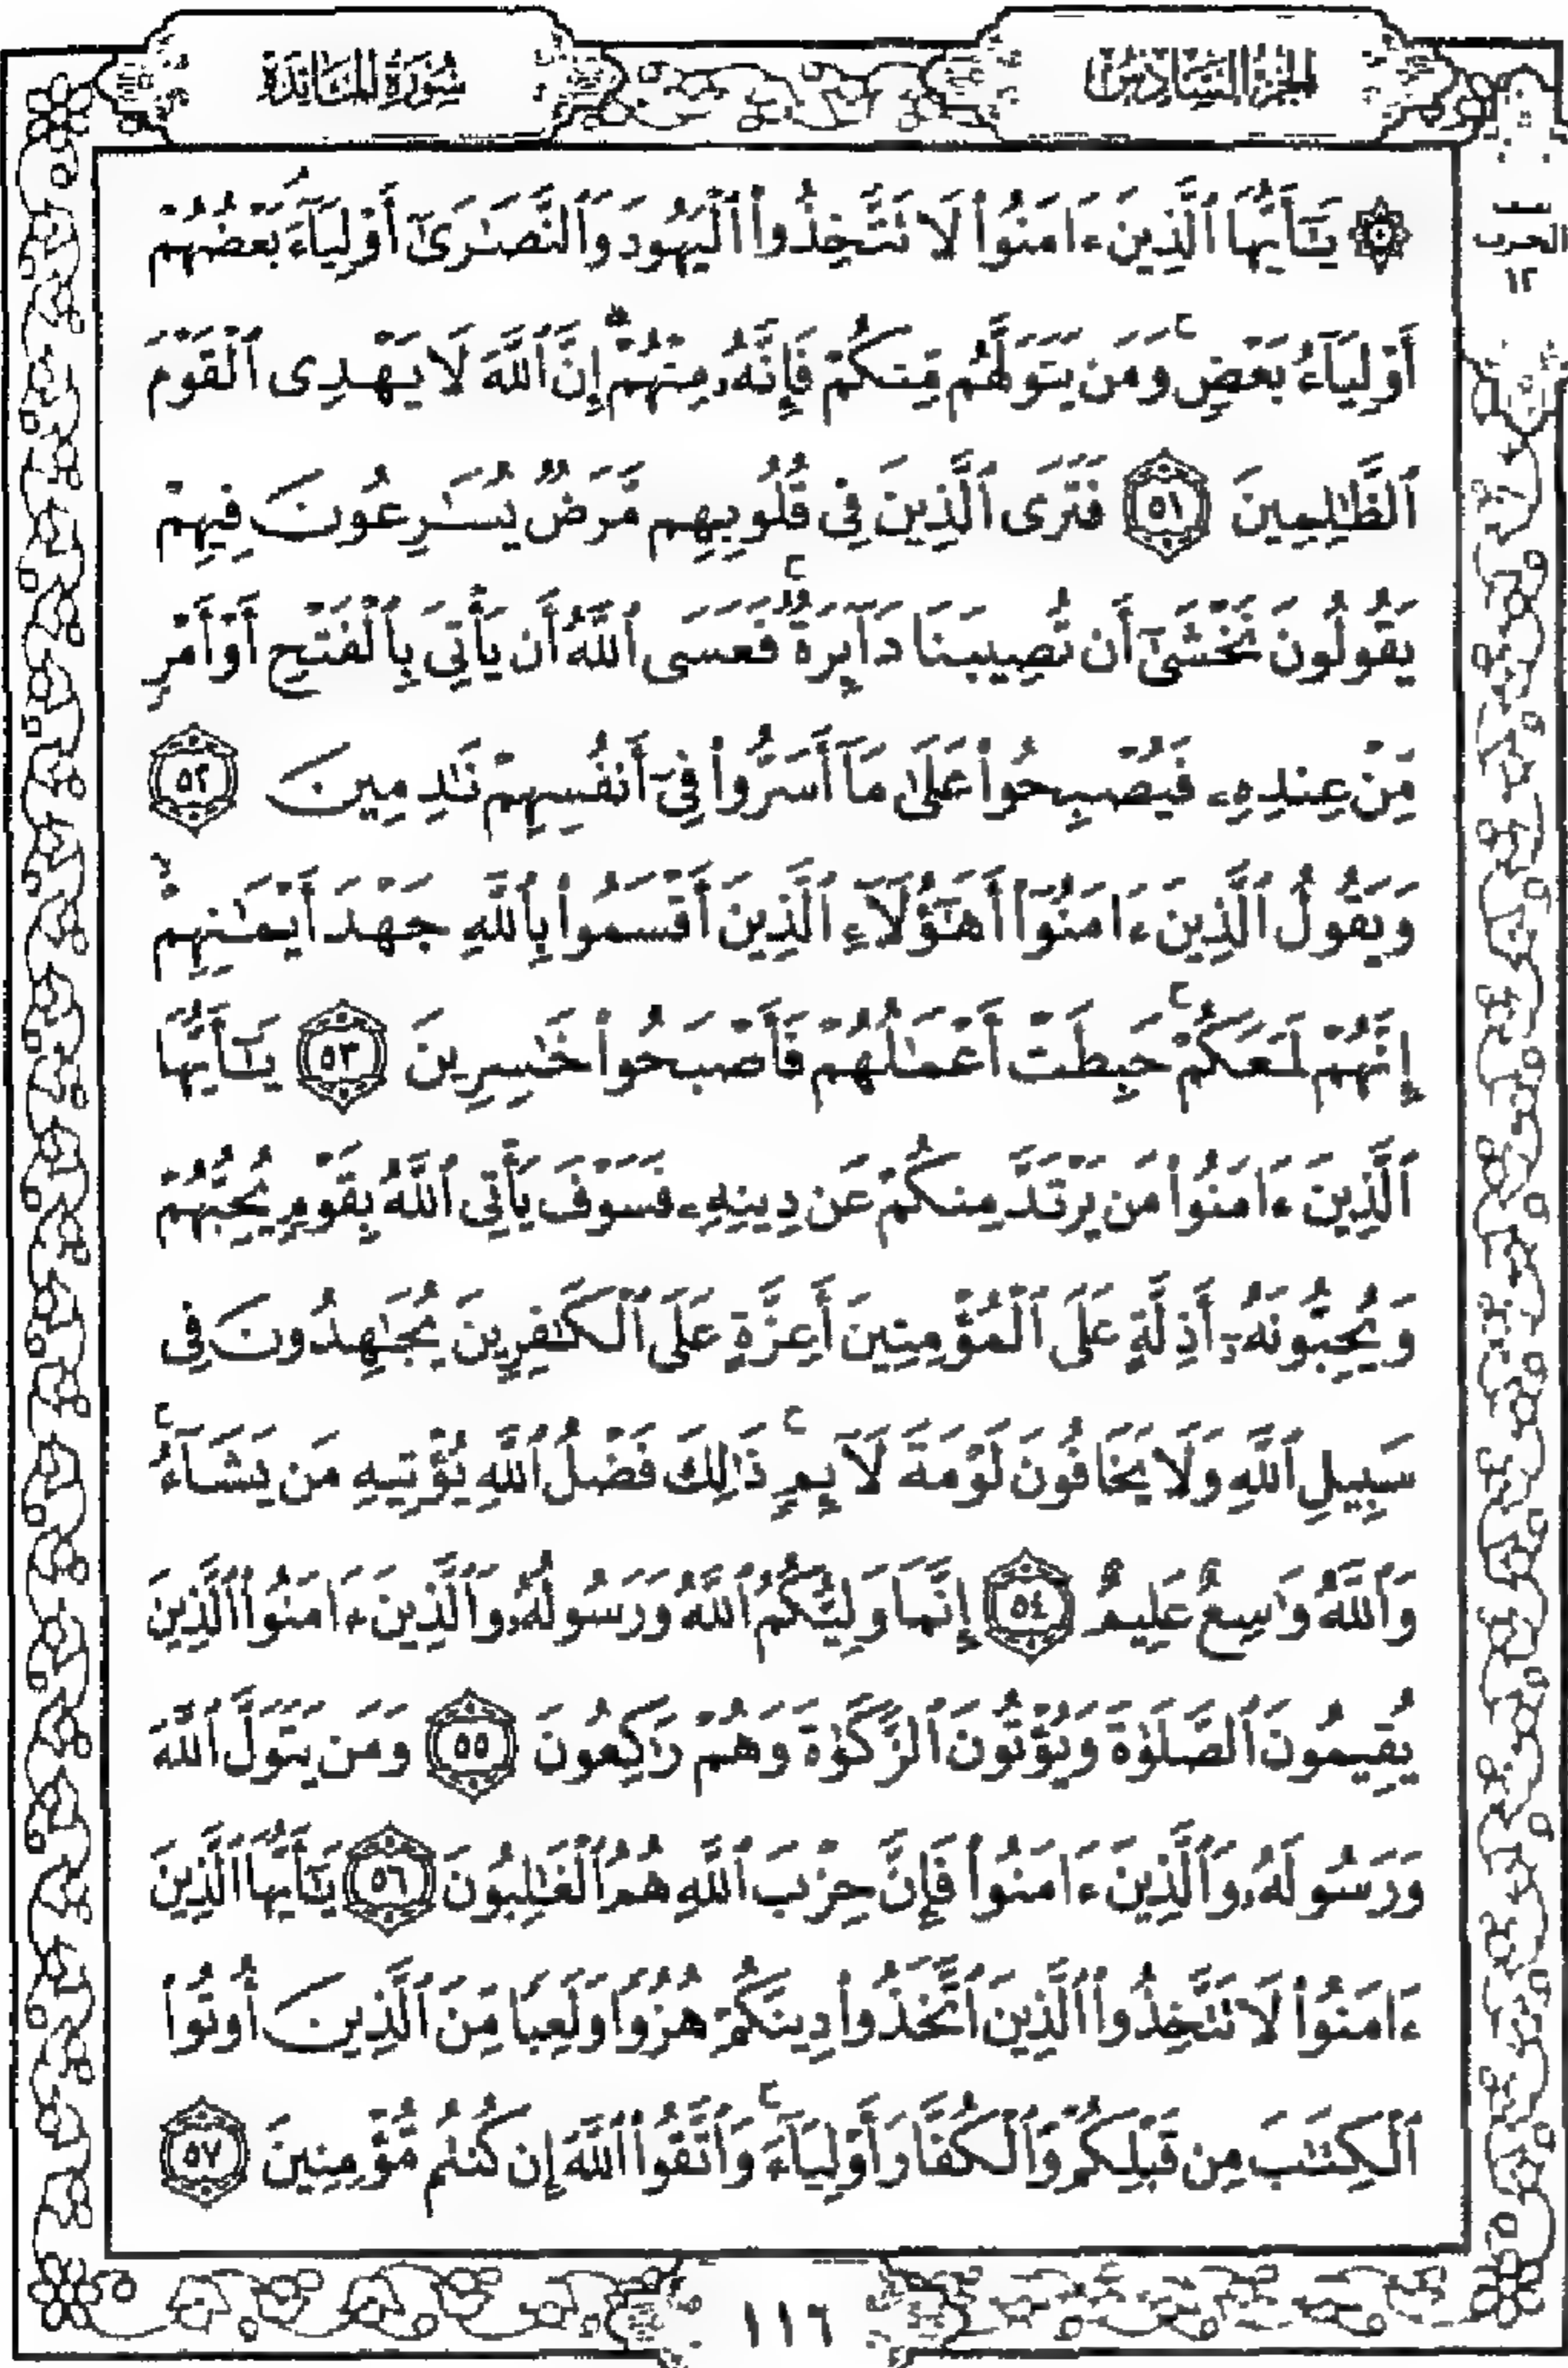 الجزء السادس
سورة المائدة
الحزب
١٢
۞ يَـٰٓأَيُّهَا ٱلَّذِينَ ءَامَنُوا۟ لَا تَتَّخِذُوا۟ ٱلْيَهُودَ وَٱلنَّصَـٰرَىٰٓ أَوْلِيَآءَ ۘ بَعْضُهُمْ
أَوْلِيَآءُ بَعْضٍ ۚ وَمَن يَتَوَلَّهُم مِّنكُمْ فَإِنَّهُۥ مِنْهُمْ ۗ إِنَّ ٱللَّهَ لَا يَهْدِى ٱلْقَوْمَ
ٱلظَّـٰلِمِينَ ٥١ فَتَرَى ٱلَّذِينَ فِى قُلُوبِهِم مَّرَضٌ يُسَـٰرِعُونَ فِيهِمْ
يَقُولُونَ نَخْشَىٰٓ أَن تُصِيبَنَا دَآئِرَةٌ ۚ فَعَسَى ٱللَّهُ أَن يَأْتِىَ بِٱلْفَتْحِ أَوْ أَمْرٍ
مِّنْ عِندِهِۦ فَيُصْبِحُوا۟ عَلَىٰ مَآ أَسَرُّوا۟ فِىٓ أَنفُسِهِمْ نَـٰدِمِينَ ٥٢
وَيَقُولُ ٱلَّذِينَ ءَامَنُوٓا۟ أَهَـٰٓؤُلَآءِ ٱلَّذِينَ أَقْسَمُوا۟ بِٱللَّهِ جَهْدَ أَيْمَـٰنِهِمْ ۙ
إِنَّهُمْ لَمَعَكُمْ ۚ حَبِطَتْ أَعْمَـٰلُهُمْ فَأَصْبَحُوا۟ خَـٰسِرِينَ ٥٣ يَـٰٓأَيُّهَا
ٱلَّذِينَ ءَامَنُوا۟ مَن يَرْتَدَّ مِنكُمْ عَن دِينِهِۦ فَسَوْفَ يَأْتِى ٱللَّهُ بِقَوْمٍ يُحِبُّهُمْ
وَيُحِبُّونَهُۥٓ أَذِلَّةٍ عَلَى ٱلْمُؤْمِنِينَ أَعِزَّةٍ عَلَى ٱلْكَـٰفِرِينَ يُجَـٰهِدُونَ فِى
سَبِيلِ ٱللَّهِ وَلَا يَخَافُونَ لَوْمَةَ لَآئِمٍ ۚ ذَٰلِكَ فَضْلُ ٱللَّهِ يُؤْتِيهِ مَن يَشَآءُ ۚ
وَٱللَّهُ وَٰسِعٌ عَلِيمٌ ٥٤ إِنَّمَا وَلِيُّكُمُ ٱللَّهُ وَرَسُولُهُۥ وَٱلَّذِينَ ءَامَنُوا۟ ٱلَّذِينَ
يُقِيمُونَ ٱلصَّلَوٰةَ وَيُؤْتُونَ ٱلزَّكَوٰةَ وَهُمْ رَٰكِعُونَ ٥٥ وَمَن يَتَوَلَّ ٱللَّهَ
وَرَسُولَهُۥ وَٱلَّذِينَ ءَامَنُوا۟ فَإِنَّ حِزْبَ ٱللَّهِ هُمُ ٱلْغَـٰلِبُونَ ٥٦ يَـٰٓأَيُّهَا ٱلَّذِينَ
ءَامَنُوا۟ لَا تَتَّخِذُوا۟ ٱلَّذِينَ ٱتَّخَذُوا۟ دِينَكُمْ هُزُوًا وَلَعِبًا مِّنَ ٱلَّذِينَ أُوتُوا۟
ٱلْكِتَـٰبَ مِن قَبْلِكُمْ وَٱلْكُفَّارَ أَوْلِيَآءَ ۚ وَٱتَّقُوا۟ ٱللَّهَ إِن كُنتُم مُّؤْمِنِينَ ٥٧
١١٦